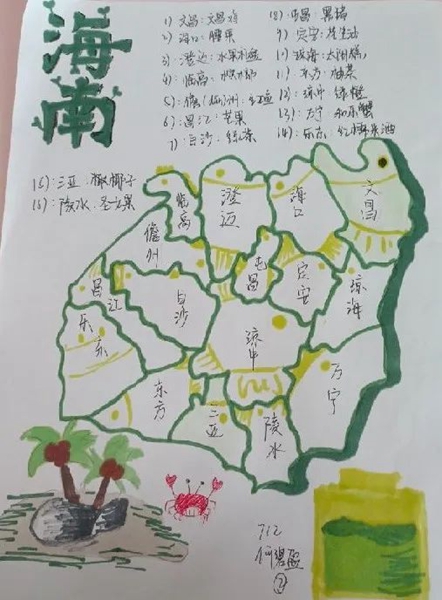 海南
1）文昌：文昌鸡
2）海口：腰果
3）澄迈：水果
4）临高：
5）儋州：红鱼
6）昌江：芒果
7）白沙：绿茶
8）屯昌：黑猪
9）定安：花生油
10）琼海：
11）东方：
12）琼中：绿橙
13）万宁：和乐蟹
14）乐东：
15）：三亚：椰子
16）：陵水：圣女果
临高
澄迈
海口
文昌
儋州
屯昌
定安
琼海
昌江
白沙
乐东
琼中
万宁
东方
三亚
陵水
712